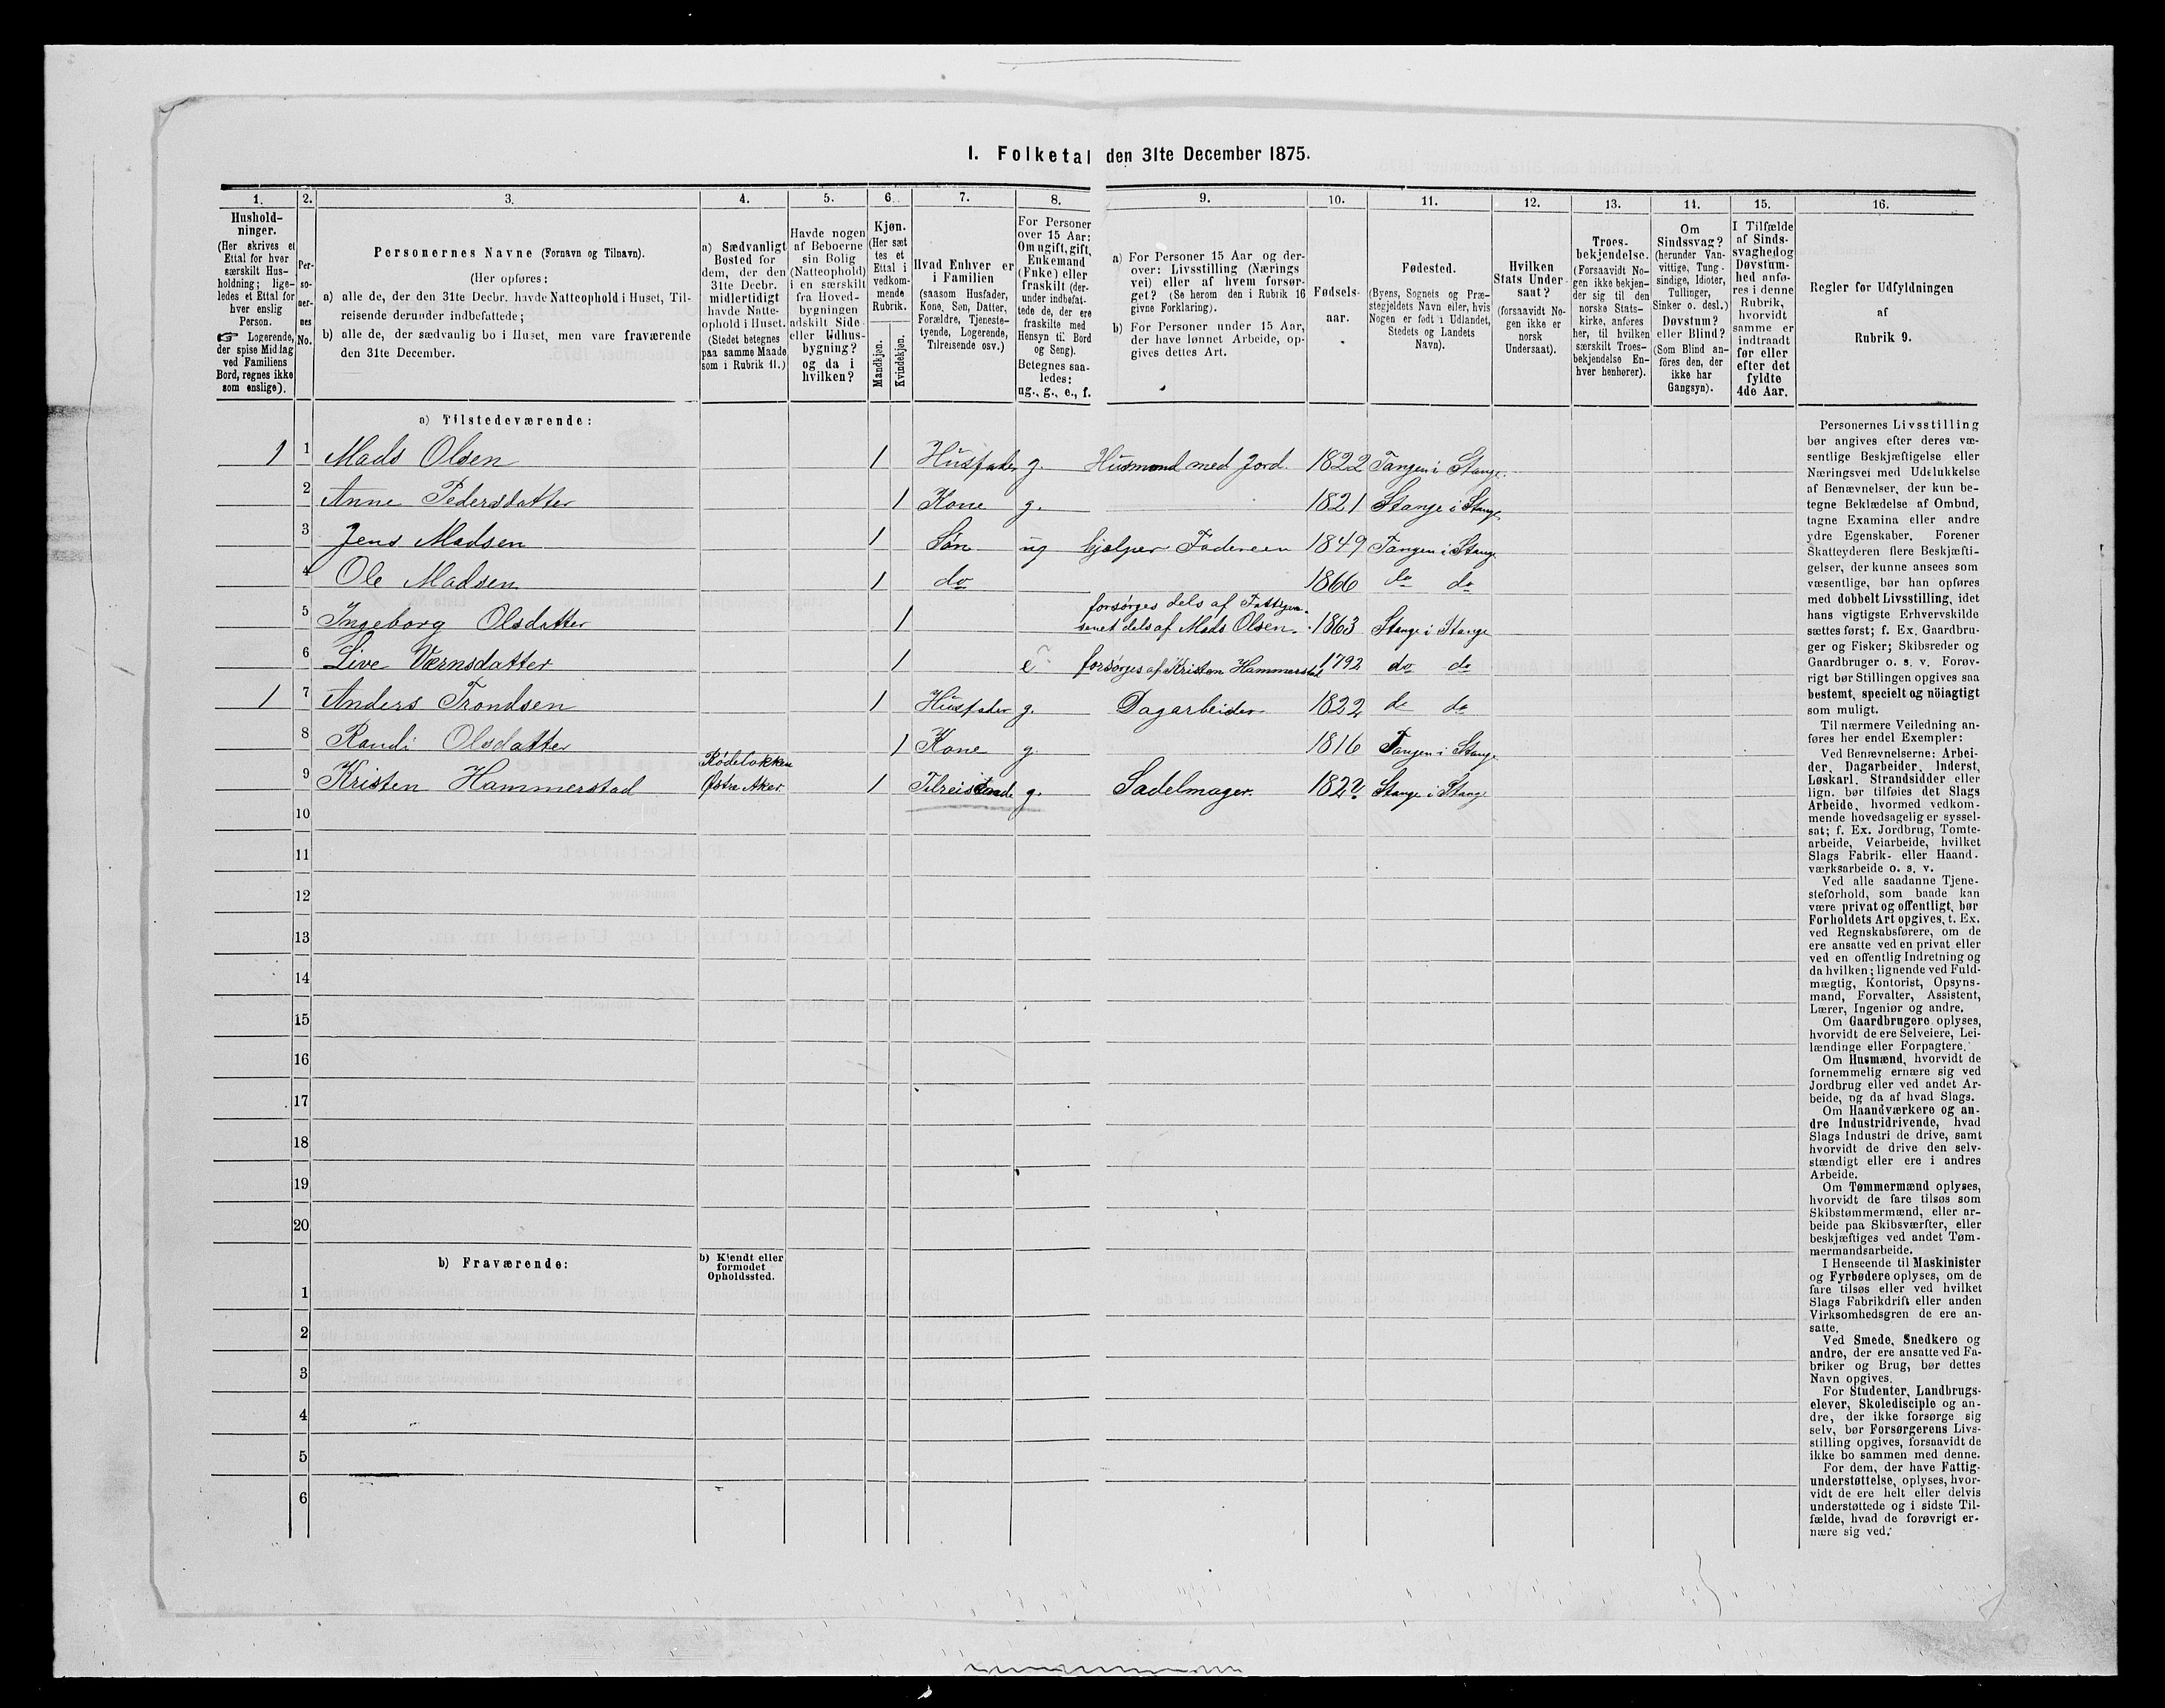 I. Folketal den 31te December 1875.
1. 2. 3. 4. 5. 6. 7. 8. 9. 10. 11. 12. 13. 14. 15. 16.
Hushold-
ninger.
(Her skrives et
Ettal for hver
særskilt Hus-
holdning; lige-
ledes et Ettal for
hver enslig
Person.
☞ Logerende,
der spise Middag
ved Familiens
Bord, regnes ikke
som enslige).
Per-
so-
ner-
nes
No.
Personernes Navne (Fornavn og Tilnavn).
(Her opføres:
a) alle de, der den 31te Decbr. havde Natteophold i Huset, Til-
reisende derunder indbefattede;
b) alle de, der sædvanlig bo i Huset, men vare fraværende
den 31te December.
a) Sædvanligt
Bosted for
dem, der den
31te Decbr.
midlertidigt
havde Natte-
ophold i Huset.
(Stedet betegnes
paa samme Maade
som i Rubrik 11.)
Havde nogen
af Beboerne
sin Bolig
(Natteophold)
i en særskilt
fra Hoved-
bygningen
adskilt Side-
eller Udhus-
bygning?
og da i
hvilken?
Kjøn.
(Her sæt-
tes et
Ettal i
vedkom-
mende
Rubrik.
Mandkjøn.
Kvindekjøn.
Hvad Enhver er
i Familien
(saasom Husfader,
Kone, Søn, Datter,
Forældre, Tjeneste-
tyende, Logerende,
Tilreisende osv.)
For Personer
over 15 Aar:
Om ugift, gift,
Enkemand
(Enke) eller
fraskilt (der-
under indbefat-
tede de, der ere
fraskilte med
Hensyn til Bord
og Seng).
Betegnes saa-
ledes:
ug., g., e., f.
a) For Personer 15 Aar og der-
over: Livsstilling (Nærings
vei) eller af hvem forsør-
get? (Se herom den i Rubrik 16
givne Forklaring).
b) For Personer under 15 Aar,
der have lønnet Arbeide, op-
gives dettes Art.
Fødsels-
aar.
Fødested.
(Byens, Sognets og Præ-
stegjeldets Navn eller, hvis
Nogen er født i Udlandet,
Stedets og Landets
Navn).
Hvilken
Stats Under-
saat?
(forsaavidt No-
gen ikke er
norsk
Undersaat).
Troes-
bekjendelse.
(Forsaavidt No-
gen ikke bekjen-
der sig til den
norske Stats-
kirke, anføres
her, til hvilken
særskilt Troes-
bekjendelse En-
hver henhører).
Om
Sindssvag?
(herunder Van-
vittige, Tung-
sindige, Idioter,
Tullinger,
Sinker o. desl.)
Døvstum?
eller Blind?
(Som Blind an-
føres den, der
ikke har
Gangsyn).
I Tilfælde
af Sinds-
svaghed og
Døvstum-
hed anfø-
res i denne
Rubrik,
hvorvidt
samme er
indtraadt
før eller
efter det
fyldte
4de Aar.
Regler for Udfyldningen
af
Rubrik 9.
a) Tilstedeværende:
1 1 Mads Olsen 1 Husfader g. Husmand med Jord. 1822 Tangen i Stange
2 Anne Pedersdatter 1 Kone g. 1821 Stange i Stange
3 Jens Madsen 1 Søn ug hjelper Faderen 1849 Tangen i Stange
4 Ole Madsen 1 do 1866 do do
forsørges dels af Fattigvæ-
5 Ingeborg Olsdatter 1 senet dels af Mads Olsen. 1863 Stange i Stange
6 Live Værnsdatter 1 e forsørges af Kristen Hammerstad 1792 do do
1 7 Anders Trondsen 1 Husfader g. Dagarbeider 1822 do do
8 Randi Olsdatter 1 Kone g. 1816 Tangen i Stange
Rødeløkken
9 Kristen Hammerstad Østre Aker 1 Tilreisende g. Sadelmager. 182? Stange i Stange
10
11
12
13
14
15
16
17
18
19
20
b) Fraværende:
b) Kjendt eller
formodet
Opholdssted.
1
2
3
4
5
6
Personernes Livsstilling
bør angives efter deres væ-
sentlige Beskjæftigelse eller
Næringsvei med Udelukkelse
af Benævnelser, der kun be-
tegne Beklædelse af Ombud,
tagne Examina eller andre
ydre Egenskaber. Forener
Skatteyderen flere Beskjæfti-
gelser, der kunne ansees som
væsentlige, bør han opføres
med dobbelt Livsstilling, idet
hans vigtigste Erhvervskilde
sættes først; f. Ex. Gaardbru-
ger og Fisker; Skibsreder og
Gaardbruger o. s. v. Forøv-
rigt bør Stillingen opgives saa
bestemt, specielt og nöiagtigt
som muligt.
Til nærmere Veiledning an-
føres her endel Exempler:
Ved Benævnelserne: Arbei-
der, Dagarbeider, Inderst,
Løskarl, Strandsidder eller
lign. bør tilføies det Slags
Arbeide, hvormed vedkom-
mende hovedsagelig er syssel-
sat; f. Ex. Jordbrug, Tomte-
arbeide, Veiarbeide, hvilket
Slags Fabrik- eller Haand-
værksarbeide o. s. v.
Ved alle saadanne Tjene-
steforhold, som baade kan
være privat og offentligt, bør
Forholdets Art opgives, t. Ex.
ved Regnskabsførere, om de
ere ansatte ved en privat eller
ved en offentlig Indretning og
da hvilken; lignende ved Fuld-
mægtig, Kontorist, Opsyns-
mand, Forvalter, Assistent,
Lærer, Ingeniør og andre.
Om Gaardbrugere oplyses,
hvorvidt de ere Selveiere, Lei-
lændinge eller Forpagtere.
Om Husmænd, hvorvidt de
fornemmelig ernære sig ved
Jordbrug eller ved andet Ar-
beide, og da af hvad Slags.
Om Haandværkere og an-
dre Industridrivende, hvad
Slags Industri de drive, samt
hvorvidt de drive den selv-
stændigt eller ere i andres
Arbeide.
Om Tømmermænd oplyses,
hvorvidt de fare tilsøs som
Skibstømmermænd, eller ar-
beide paa Skibsværfter, eller
beskjæftiges ved andet Tøm-
mermandsarbeide.
I Henseende til Maskinister
og Fyrbødere oplyses, om de
fare tilsøs eller ved hvilket
Slags Fabrikdrift eller anden
Virksomhedsgren de ere an-
satte.
Ved Smede, Snedkere og
andre, der ere ansatte ved Fa-
briker og Brug, bør dettes
Navn opgives.
For Studenter, Landbrugs-
elever, Skoledisciple og an-
dre, der ikke forsørge sig
selv, bør Forsørgerens Livs-
stilling opgives, forsaavidt de
ikke bo sammen med denne.
For dem, der have Fattig-
understøttelse, oplyses, hvor-
vidt de ere helt eller delvis
understøttede og i sidste Til-
fælde, hvad de forøvrigt er-
nære sig ved.